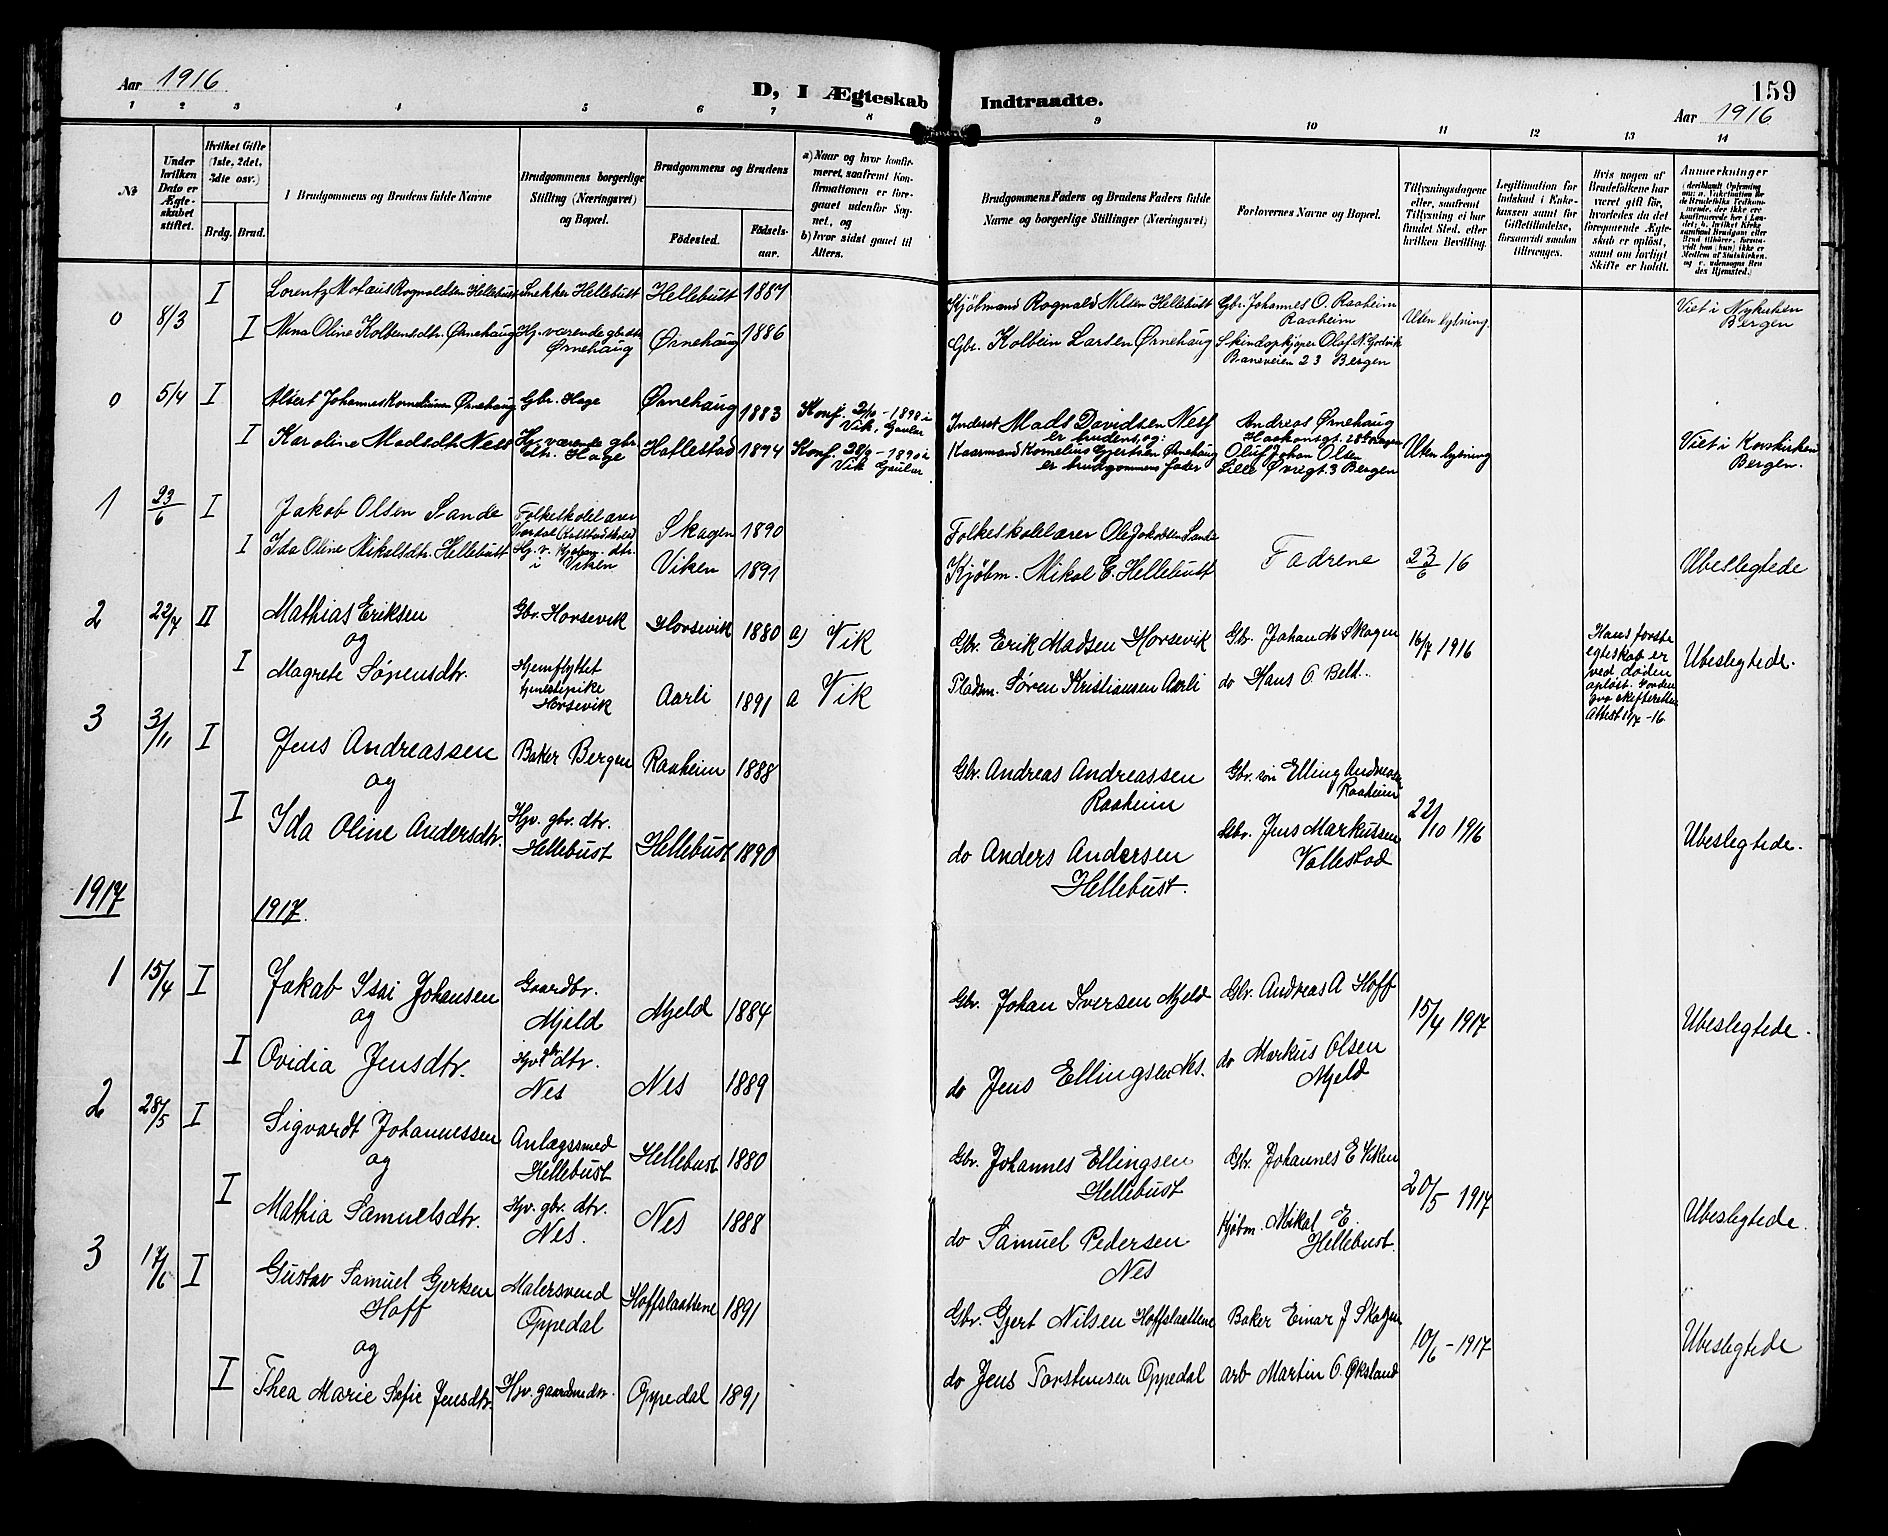 Aar 1916
D, I Ægteskab Indtraadte.
159
Aar 1916
1 2 3 4 5 6 7 8 9 10 11 12 13 14
No
Under hvilken Dato er Ægteskabet stiftet.
Hvilket Gifte (1ste, 2det, 3die osv.)
Brdg. Brud.
Brudgommens og Brudens fulde Navne
Brudgommens borgerlige Stilling (Næringsvei) og Bopæl.
Brudgommens og Brudens
Födested.
Födselsaar.
a) Naar og hvor konfirmeret, saafremt Konfirmationen er foregaaet udenfor Sognet, og
b) hvor sidst gaaet til Alters.
Brudgommens Faders og Brudens Faders fulde Navne og borgerlige Stillinger (Næringsvei)
Forlovernes Navne og Bopæl.
Tillysningsdagene eller, saafremt Tillysning ei har fundet Sted, efter hvilken Bevilling.
Legitimation for Indskud i Enkekassen samt for Giftetilladelse, forsaavidt saadan tiltrænges.
Hvis nogen af Brudefolkene har været gift för, hvorledes da det foregaaende Ægteskab er oplöst, samt om lovligt Skifte er holdt.
Anmærkninger
0 8/3 I Lorentz Rognaldsen Hellebust Snekker Hellebust Hellebust 1887
I Nina Oline Kolbensdtr. Ørnehaug Hj. værende gbr. dtr. Ørnehaug Ørnehaug 1886
Kjøbmand Rognald Nilsen Hellebust Gbr. Johannes O. Raaheim
Raaheim
Uten lysning.
Viet i Nykirken
Bergen
Gbr. Kolbein Larsen Ørnehaug Skindopkjøper Olaf N.
23 Bergen
0 5/4 I Albert Johannes Kornelius Ørnehaug Gbr. Hage Ørnehaug 1883 Konf. 2/10 - 1898 i
Vik, Gaular
I Karoline Madsdtr. Ness Hj. værende gbr.
dtr. Hage Hatlestad 1894 Konf. 28/9 - 1890 i
Vik Gaular
Inderst Mads Davidsen Ness
er brudens, og:
Kaarmand Kornelius Gjertsen Ørnehaug
er brudgommens fader
Andreas Ørnehaug
Haakonsgt. 28 Bergen
Oluf Johan Olsen
Lille Øvregt. 3 Bergen
Uten lysning
Viet i Korskirken
Bergen.
1 23/6 I Jakob Olsen Sande Folkeskolelærer
Skagen 1890
I Ida Oline Mikalsdtr. Hellebust Hj. v. Kjøbm. dtr.
i Viken Viken 1891
Folkeskolelærer Ole Jakobsen Sande
Kjøbm. Mikal E. Hellebust
Fadrene
23/6 16
Ubeslegtede
2 22/7 II Mathias Eriksen
og
Gbr. Horsevik Horsevik 1880 a) Vik
I Magrete Sørensdtr. Hjemflyttet
tjenestepike
Horsevik Aarli 1891 a Vik
Gbr. Erik Madsen Horsevik Gbr. Johan M Skagen
Pladsm. Søren Kristiansen Aarli do Hans O Belt.
16/7 1916
Hans første
egteskab er
ved døden
opløst.
Attest 11/7 - 16
Ubeslegtede.
3 3/11 I Jens Andreassen
og
Baker Bergen Raaheim 1888
I Ida Oline Andersdtr. Hjv. gbr. dtr.
Hellebust Hellebust 1890
Gbr. Andreas Andreassen
Raaheim
Gbr. søn Elling Andreassen
Raaheim
do Anders Andersen
Hellebust.
Gbr. Jens Markussen
Vallestad
22/10 1916
Ubeslegtede.
1917
1917.
1 15/4 I Jakob Isai Johansen
og
Gaardbr.
Mjeld Mjeld 1884
I Ovidia Jensdtr. Hjv. gbr dtr.
Nes Nes 1889
Gbr. Johan Iversen Mjeld Gbr. Andreas A Hoff
do Jens Ellingsen Nes. do Markus Olsen
Mjeld
15/4 1917
Ubeslegtede.
2 28/5 I Sigvardt Johannessen
og
Anlægssmed
Hellebust Hellebust 1880
I Mathia Samuelsdtr. Hjv. gbr. dtr.
Nes. Nes 1888
Gbr. Johannes Ellingsen
Hellebust
Gbr. Johannes E Viken
do Samuel Pedersen
Nes
Kjøbm. Mikal E.
Hellebust.
20/5 1917
Ubeslegtede.
3 17/6 I Gustav Samuel Gjertsen
Hoff
og
Malersvend
Oppedal Hoffslaattene 1891
I Thea Marie Sofie Jensdtr. Hjv. gaardmdtr. Oppedal 1891
Gbr. Gjert Nilsen Hoffslaattene Baker Einar J Skagen
do Jens Torstensen Oppedal arb Martin O. Øksland
10/6 - 1917
Ubeslegtede